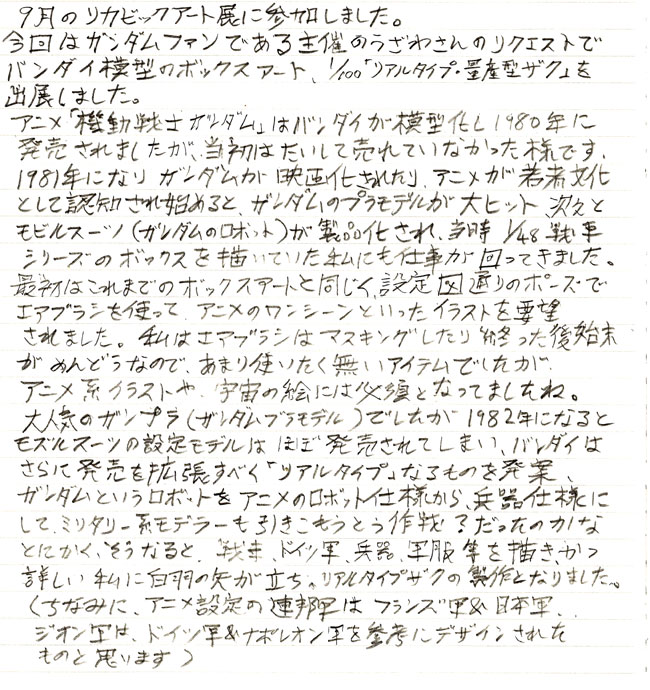 9月のリカビックアート展に参加しました。
今回はガンダムファンである主催のうざわさんのリクエストで
バンダイ模型のボックスアート、1/100「リアルタイプ・量産型ザク」を
出展しました。
アニメ「機動戦士ガンダム」はバンダイが模型化し1980年に
発売されましたが、当初はたいして売れていなかった様です、
1981年になりガンダムが映画化されたり、アニメが若者文化
として認知され始めると、ガンダムのプラモデルが大ヒット、次々と
モビルスーツ(ガンダムのロボット)が製品化され、当時1/48戦車
シリーズのボックスを描いていた私にも仕事が回ってきました。
最初はこれまでのボックスアートと同じく、設定図通りのポーズで
エアブラシを使って、アニメのワンシーンといったイラストを要望
されました。私はエアブラシはマスキングしたり終った後始末
がめんどうなので、あまり使いたく無いアイテムでしたが、
アニメ系イラストや、宇宙の絵には必須となってましたね。
大人気のガンプラ(ガンダムプラモデル)でしたが1982年になると
モビルスーツの設定モデルはほぼ発売されてしまい、バンダイは
さらに発売を拡張すべく「リアルタイプ」なるものを発案、
ガンダムというロボットをアニメのロボット仕様から、兵器仕様に
して、ミリタリー系モデラーも引きこもうとう作戦?だったのかな
とにかく、そうなると、戦車、ドイツ軍、兵器、軍服等を描き、かつ
詳しい私に白羽の矢が立ち。リアルタイプザクの製作となりました。
(ちなみに、アニメ設定の連邦軍はフランス軍&日本軍、
ジオン軍は、ドイツ軍&ナポレオン軍を参考にデザインされた
ものと思います)